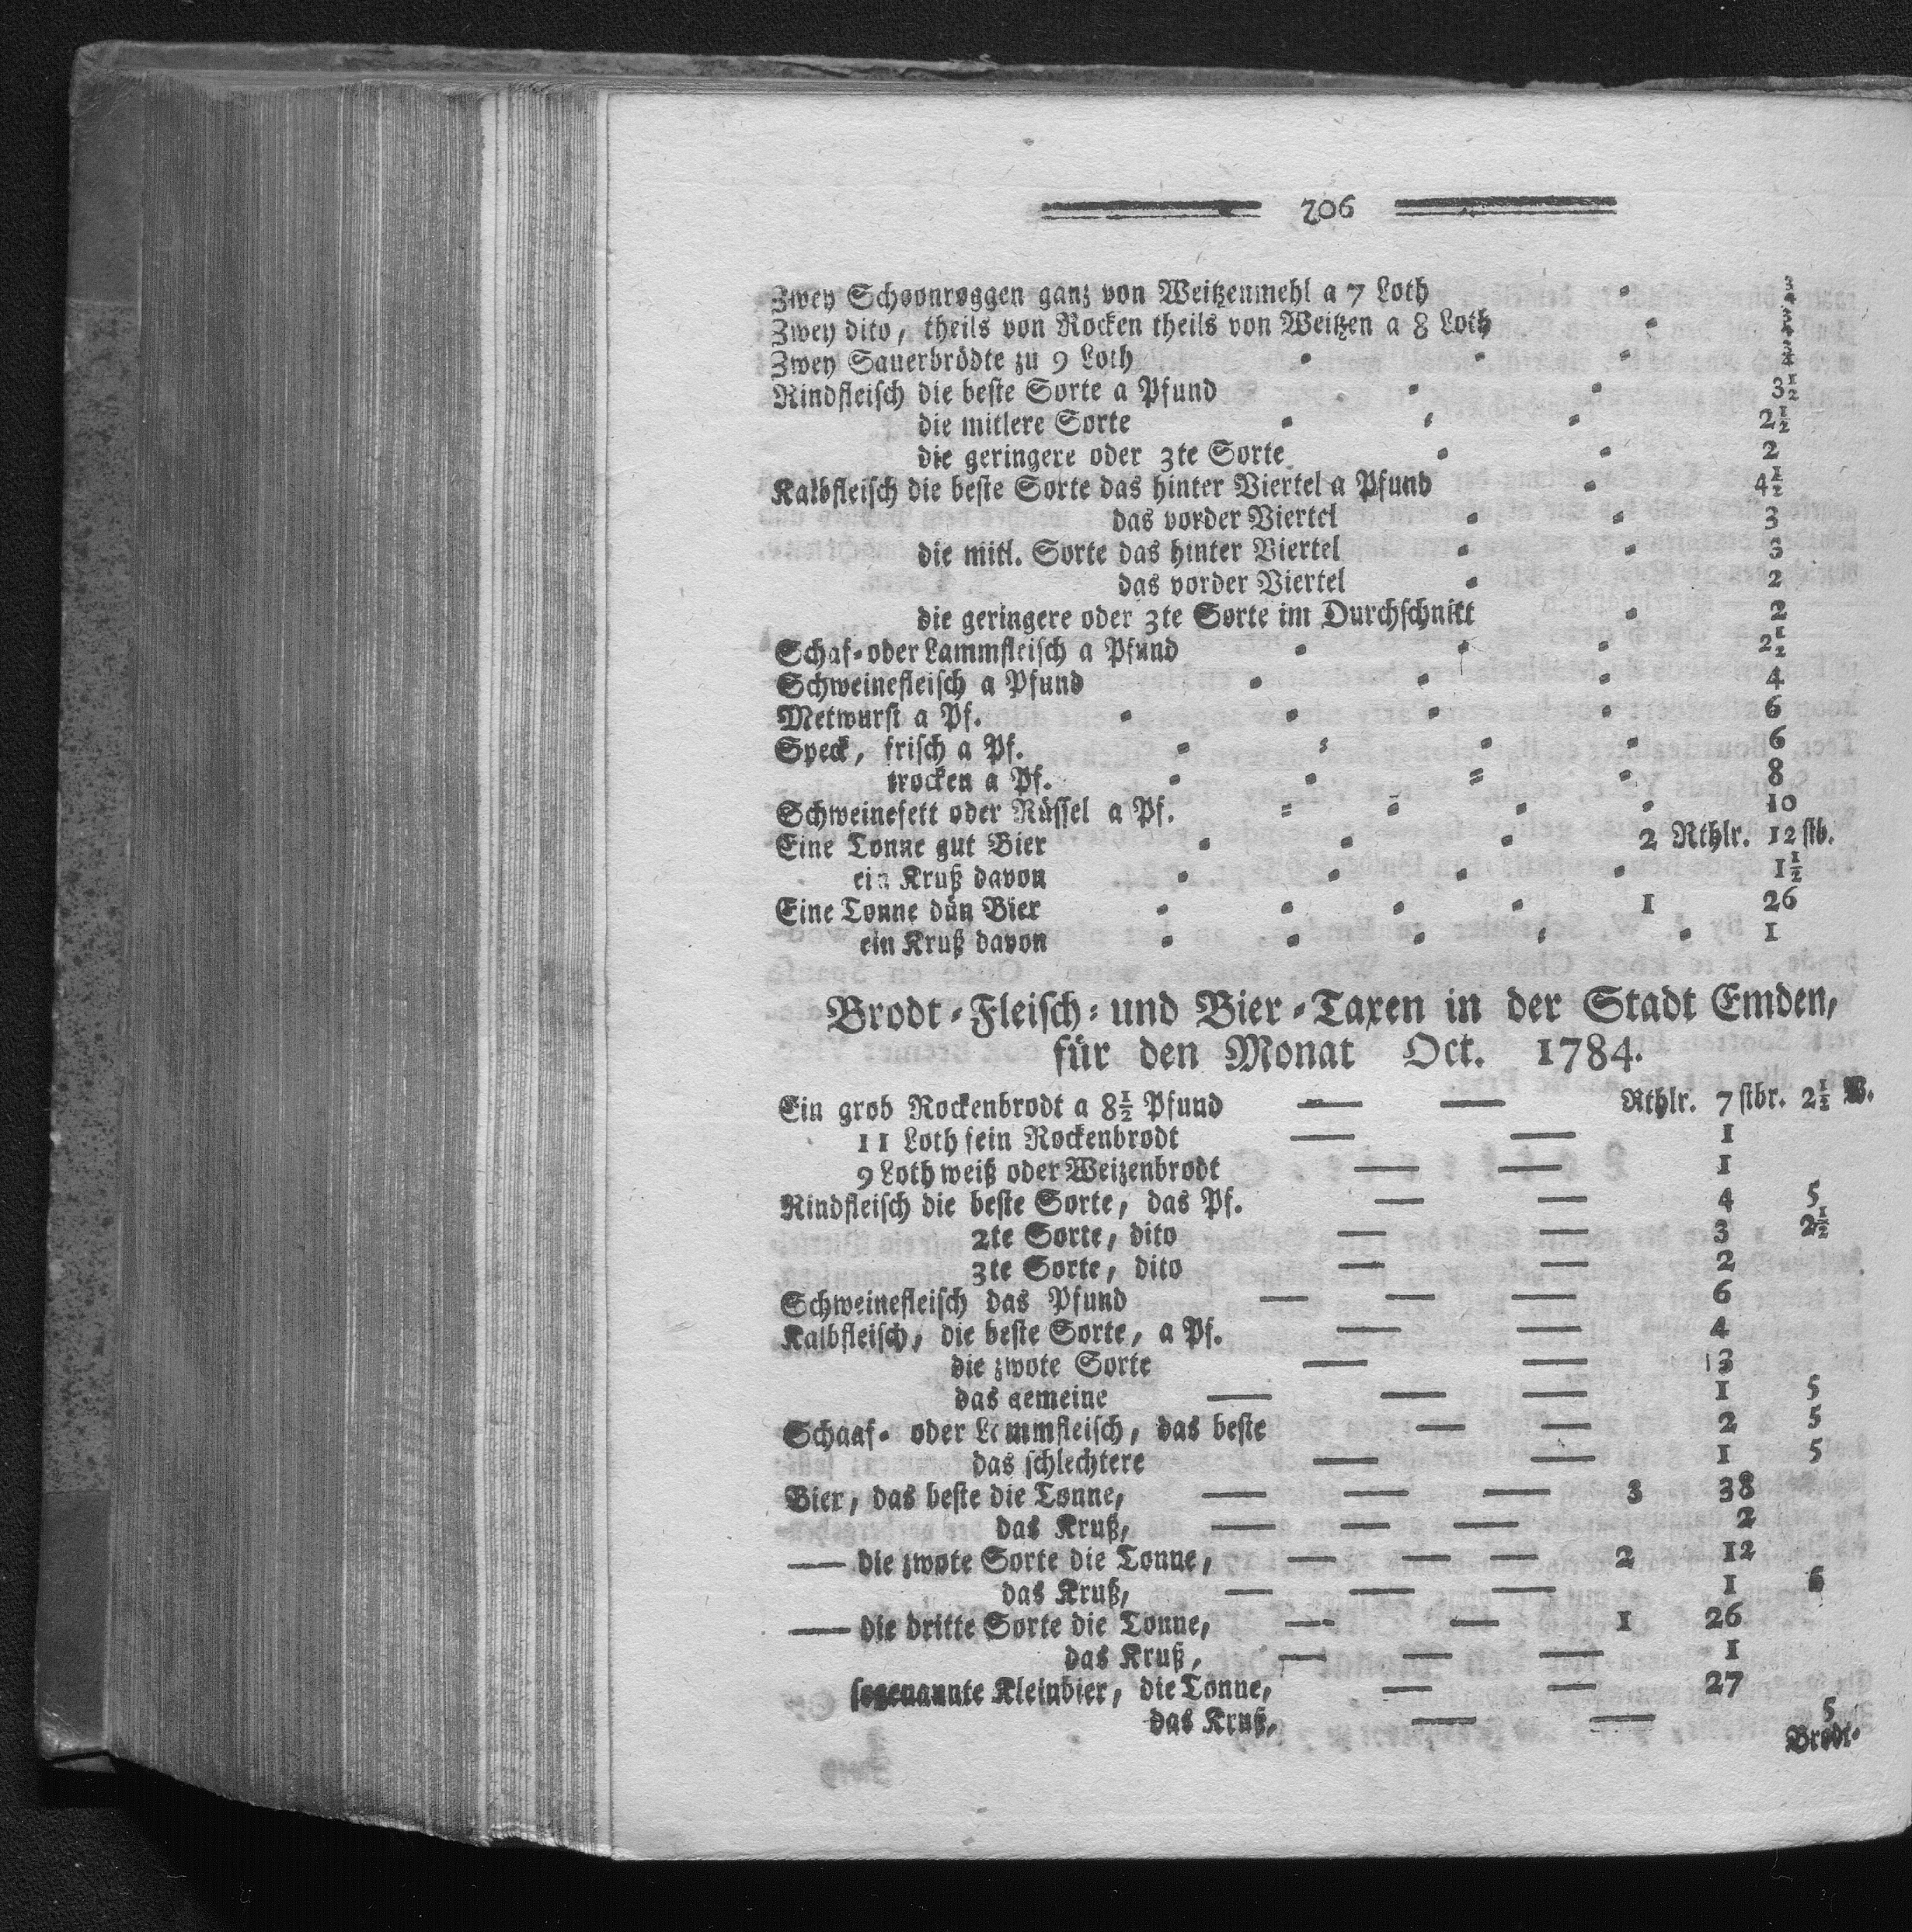 706
Zwey Schoonroggen ganz von Weitzenmehl a 7 Loth = 3/4
Zwey dito, theils von Rocken theils von Weitzen a 8 Loth = 3/4
Zwey Sauerbrödte zu 9 Loth = = = 3/4
Rindfleisch die beste Sorte a Pfund = = 3 1/2
die mitlere Sorte = = = 2 1/2
die geringere oder 3te Sorte = = 2
Kalbfleisch die beste Sorte das hinter Viertel a Pfund = 4 1/2
das vorder Viertel = = 3
die mitl. Sorte das hinter Viertel = = 3
das vorder Viertel = 2
die geringere oder 3te Sorte im Durchschnitt = 2
Schaf=oder Lammfleisch a Pfund = = = 2 1/2
Schweinefleisch a Pfund = = = 4
Metwurst a Pf. = = = = 6
Speck, frisch a Pf. = = = = 6
trocken a Pf. = = = = 8
Schweinefett oder Rüssel a Pf. = = = = 10
Eine Tonne gut Bier = = = 2 Rthlr. 12 stb.
ein Kruß davon = = = = 1 1/2
Eine Tonne dün Bier = = = = 1 26
ein Kruß davon = = = = = 1
Brodt=Fleisch= und Bier=Taxen in der Stadt Emden,
für den Monat Oct. 1784.
Ein grob Rockenbrodt a 8 1/2 Pfund — — Rthlr. 7 stbr. 2 1/2 W.
11 Loth fein Rockenbrodt — — 1
9 Loth weiß oder Weizenbrodt — — 1
Rindfleisch die beste Sorte, das Pf. — — 4 5
2te Sorte, dito — — 3 2 1/2
3te Sorte, dito — — 2
Schweinefleisch das Pfund — — — 6
Kalbfleisch, die beste Sorte, a Pf. — — 4
die zwote Sorte — — 3
das gemeine — — — 1 5
Schaaf= oder Lammfleisch, das beste — — 2 5
das schlechtere — — 1 5
Bier, das beste die Tonne, — — — 3 38
das Kruß, — — — 2
— die zwote Sorte die Tonne, — — — 2 12
das Kruß, — — — 1 5
— die dritte Sorte die Tonne, — — 1 26
das Kruß, — — — 1
sogenannte Kleinbier, die Tonne, — — 27
das Kruß, — — 5
Brodt=